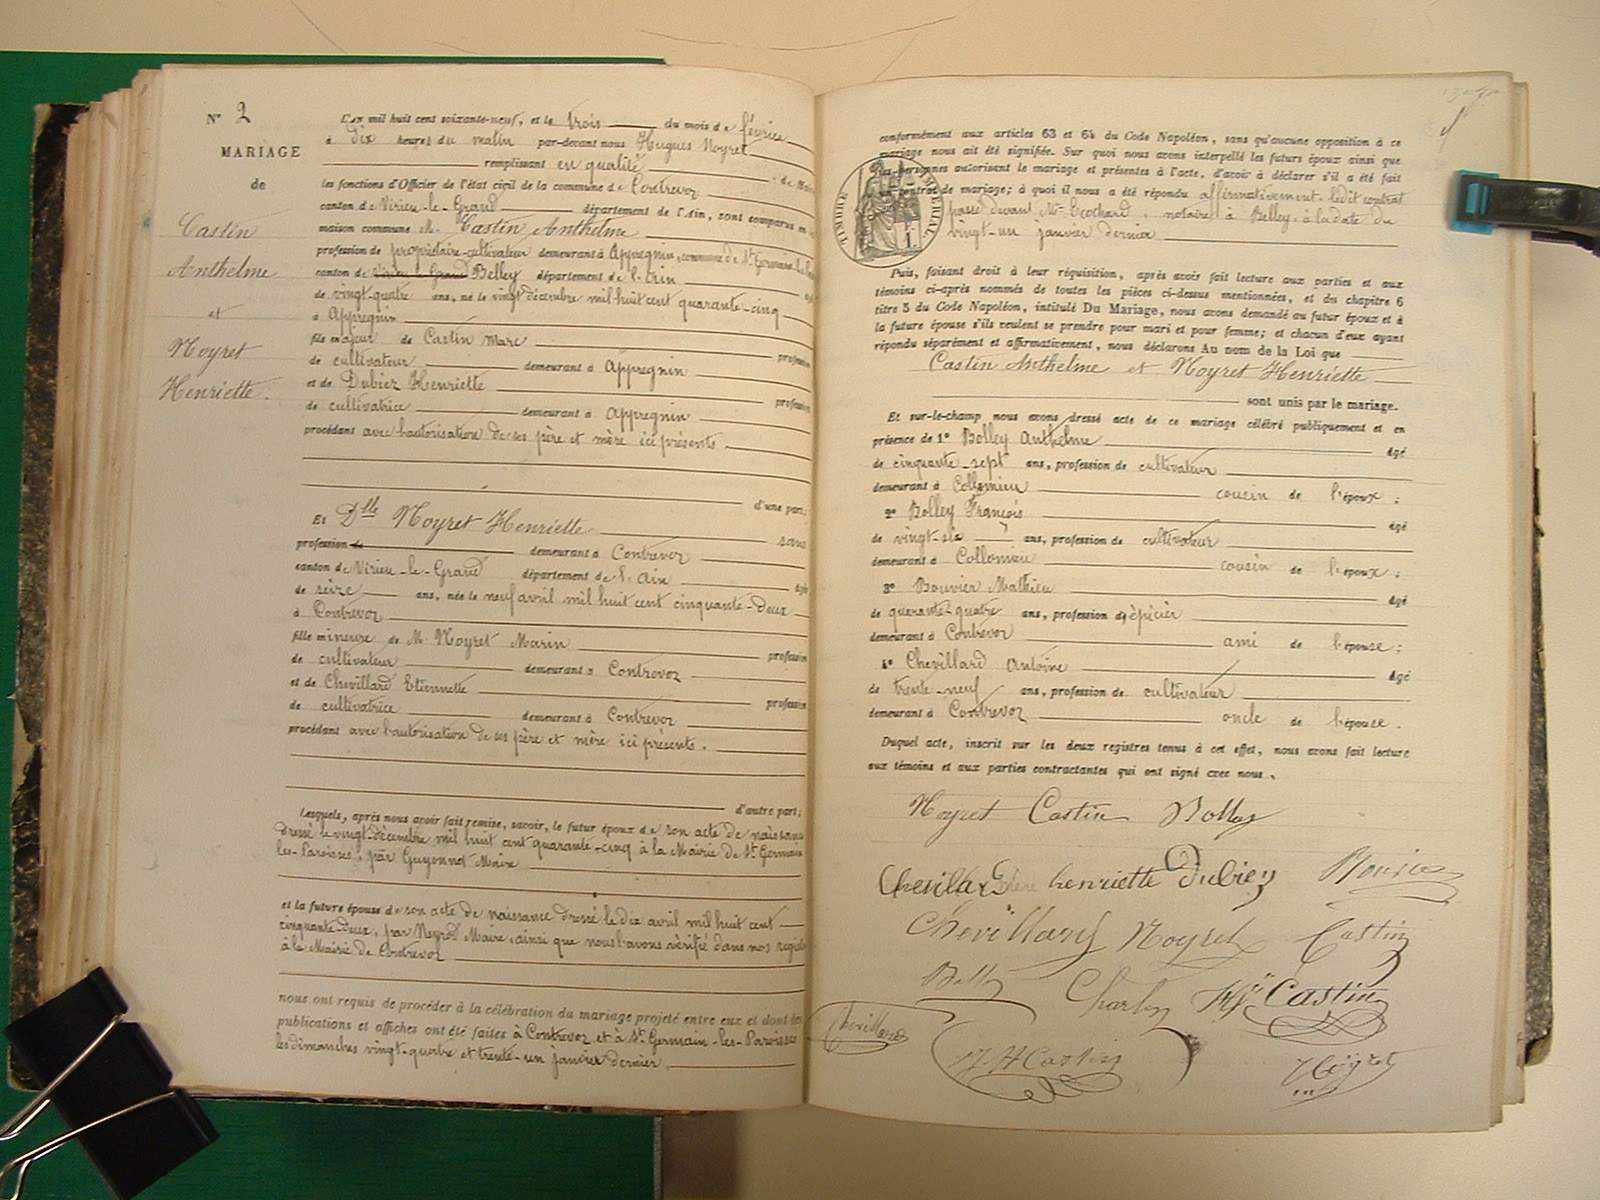 N° 2
MARIAGE
de
Castin
Anthelme
et
Noyret
Henriette.
L'an mil huit cent soixante-neuf, et le trois du mois de février
à dix heures du matin par-devant nous Hugues Noyret
remplissant en qualité de Maire
les fonctions d'Officier de l'état civil de la commune de Contrevoz
canton de Virieu-le-Grand département de l'Ain, sont comparus en la
maison commune M. Castin Anthelme
profession de propriétaire-cultivateur demeurant à Appregnin, commune de St Germain-les-
canton de Virieu-le-Grand Belley département de l'Ain âgé
de vingt-quatre ans, né le vingt décembre mil huit cent quarante-cinq
à Appregnin
fils majeur de Castin Marc profession
de cultivateur demeurant à Appregnin
et de Dubiez Henriette profession
de cultivatrice demeurant à Appregnin
procédant avec l'autorisation de ses père et mère ici présents
d'une part;
Et Dlle Noyret Henriette sans
profession de demeurant à Contrevoz
canton de Virieu-le-Grand département de l'Ain âgée
de seize ans, née le neuf avril mil huit cent cinquante-deux
à Contrevoz
fille mineure de M. Noyret Marin profession
de cultivateur demeurant à Contrevoz
et de Chevillard Etiennette profession
de cultivatrice demeurant à Contrevoz
procédant avec l'autorisation de ses père et mère ici présents.
d'autre part;
Lesquels, après nous avoir fait remise, savoir, le futur époux de son acte de naissance
dressé le vingt-décembre mil huit cent quarante-cinq à la Mairie de St Germain
les-Paroisses, par Guyonnet Maire
et la future épouse de son acte de naissance dressé le dix avril mil huit cent
cinquante-deux, par Neyrod Maire, ainsi que nous l'avons vérifié dans nos registres
à la Mairie de Contrevoz
nous ont requis de procéder à la célébration du mariage projeté entre eux et dont les
publications et affiches ont été faites à Contrevoz et à St Germain-les-Paroisses
les dimanches vingt-quatre et trente-un janvier dernier
conformément aux articles 63 et 64 du Code Napoléon, sans qu'aucune opposition à ce
mariage nous ait été signifiée. Sur quoi nous avons interpellé les futurs époux ainsi que
les personnes autorisant le mariage et présentes à l'acte, d'avoir à déclarer s'il a été fait
un contrat de mariage; à quoi il nous a été répondu affirmativement. ledit contrat
passé devant Me Ecochard, notaire à Belley, à la date du
vingt-un janvier dernier
TIMBRE IMPERIAL
Puis, faisant droit à leur réquisition, après avoir fait lecture aux parties et aux
témoins ci-après nommés de toutes les pièces ci-dessus mentionnées, et du chapitre 6
titre 5 du Code Napoléon, intitulé Du Mariage, nous avons demandé au futur époux et à
la future épouse s'ils veulent se prendre pour mari et pour femme; et chacun d'eux ayant
répondu séparément et affirmativement, nous déclarons Au nom de la Loi que
Castin Anthelme et Noyret Henriette
sont unis par le mariage.
Et sur-le-champ nous avons dressé acte de ce mariage célébré publiquement et en
présence de 1° Bolley Anthelme âgé
de cinquante-sept ans, profession de cultivateur
demeurant à Collomieu cousin de l'époux;
2° Bolley François âgé
de vingt-six ans, profession de cultivateur
demeurant à Collomieu cousin de l'époux;
3° Bouvier Mathieu âgé
de quarante-quatre ans, profession d'épicier
demeurant à Contrevoz ami de l'épouse;
4° Chevillard Antoine âgé
de trente-neuf ans, profession de cultivateur
demeurant à Contrevoz oncle de l'épouse.
Duquel acte, inscrit sur les deux registres tenus à cet effet, nous avons fait lecture
aux témoins et aux parties contractantes qui ont signé avec nous.
Noyret Castin Bolley
Chevillard henriette Dubiez Bouvier
Chevillard Noyret Castin
Bolley Charlon Castin
Chevillard Castin Noyret